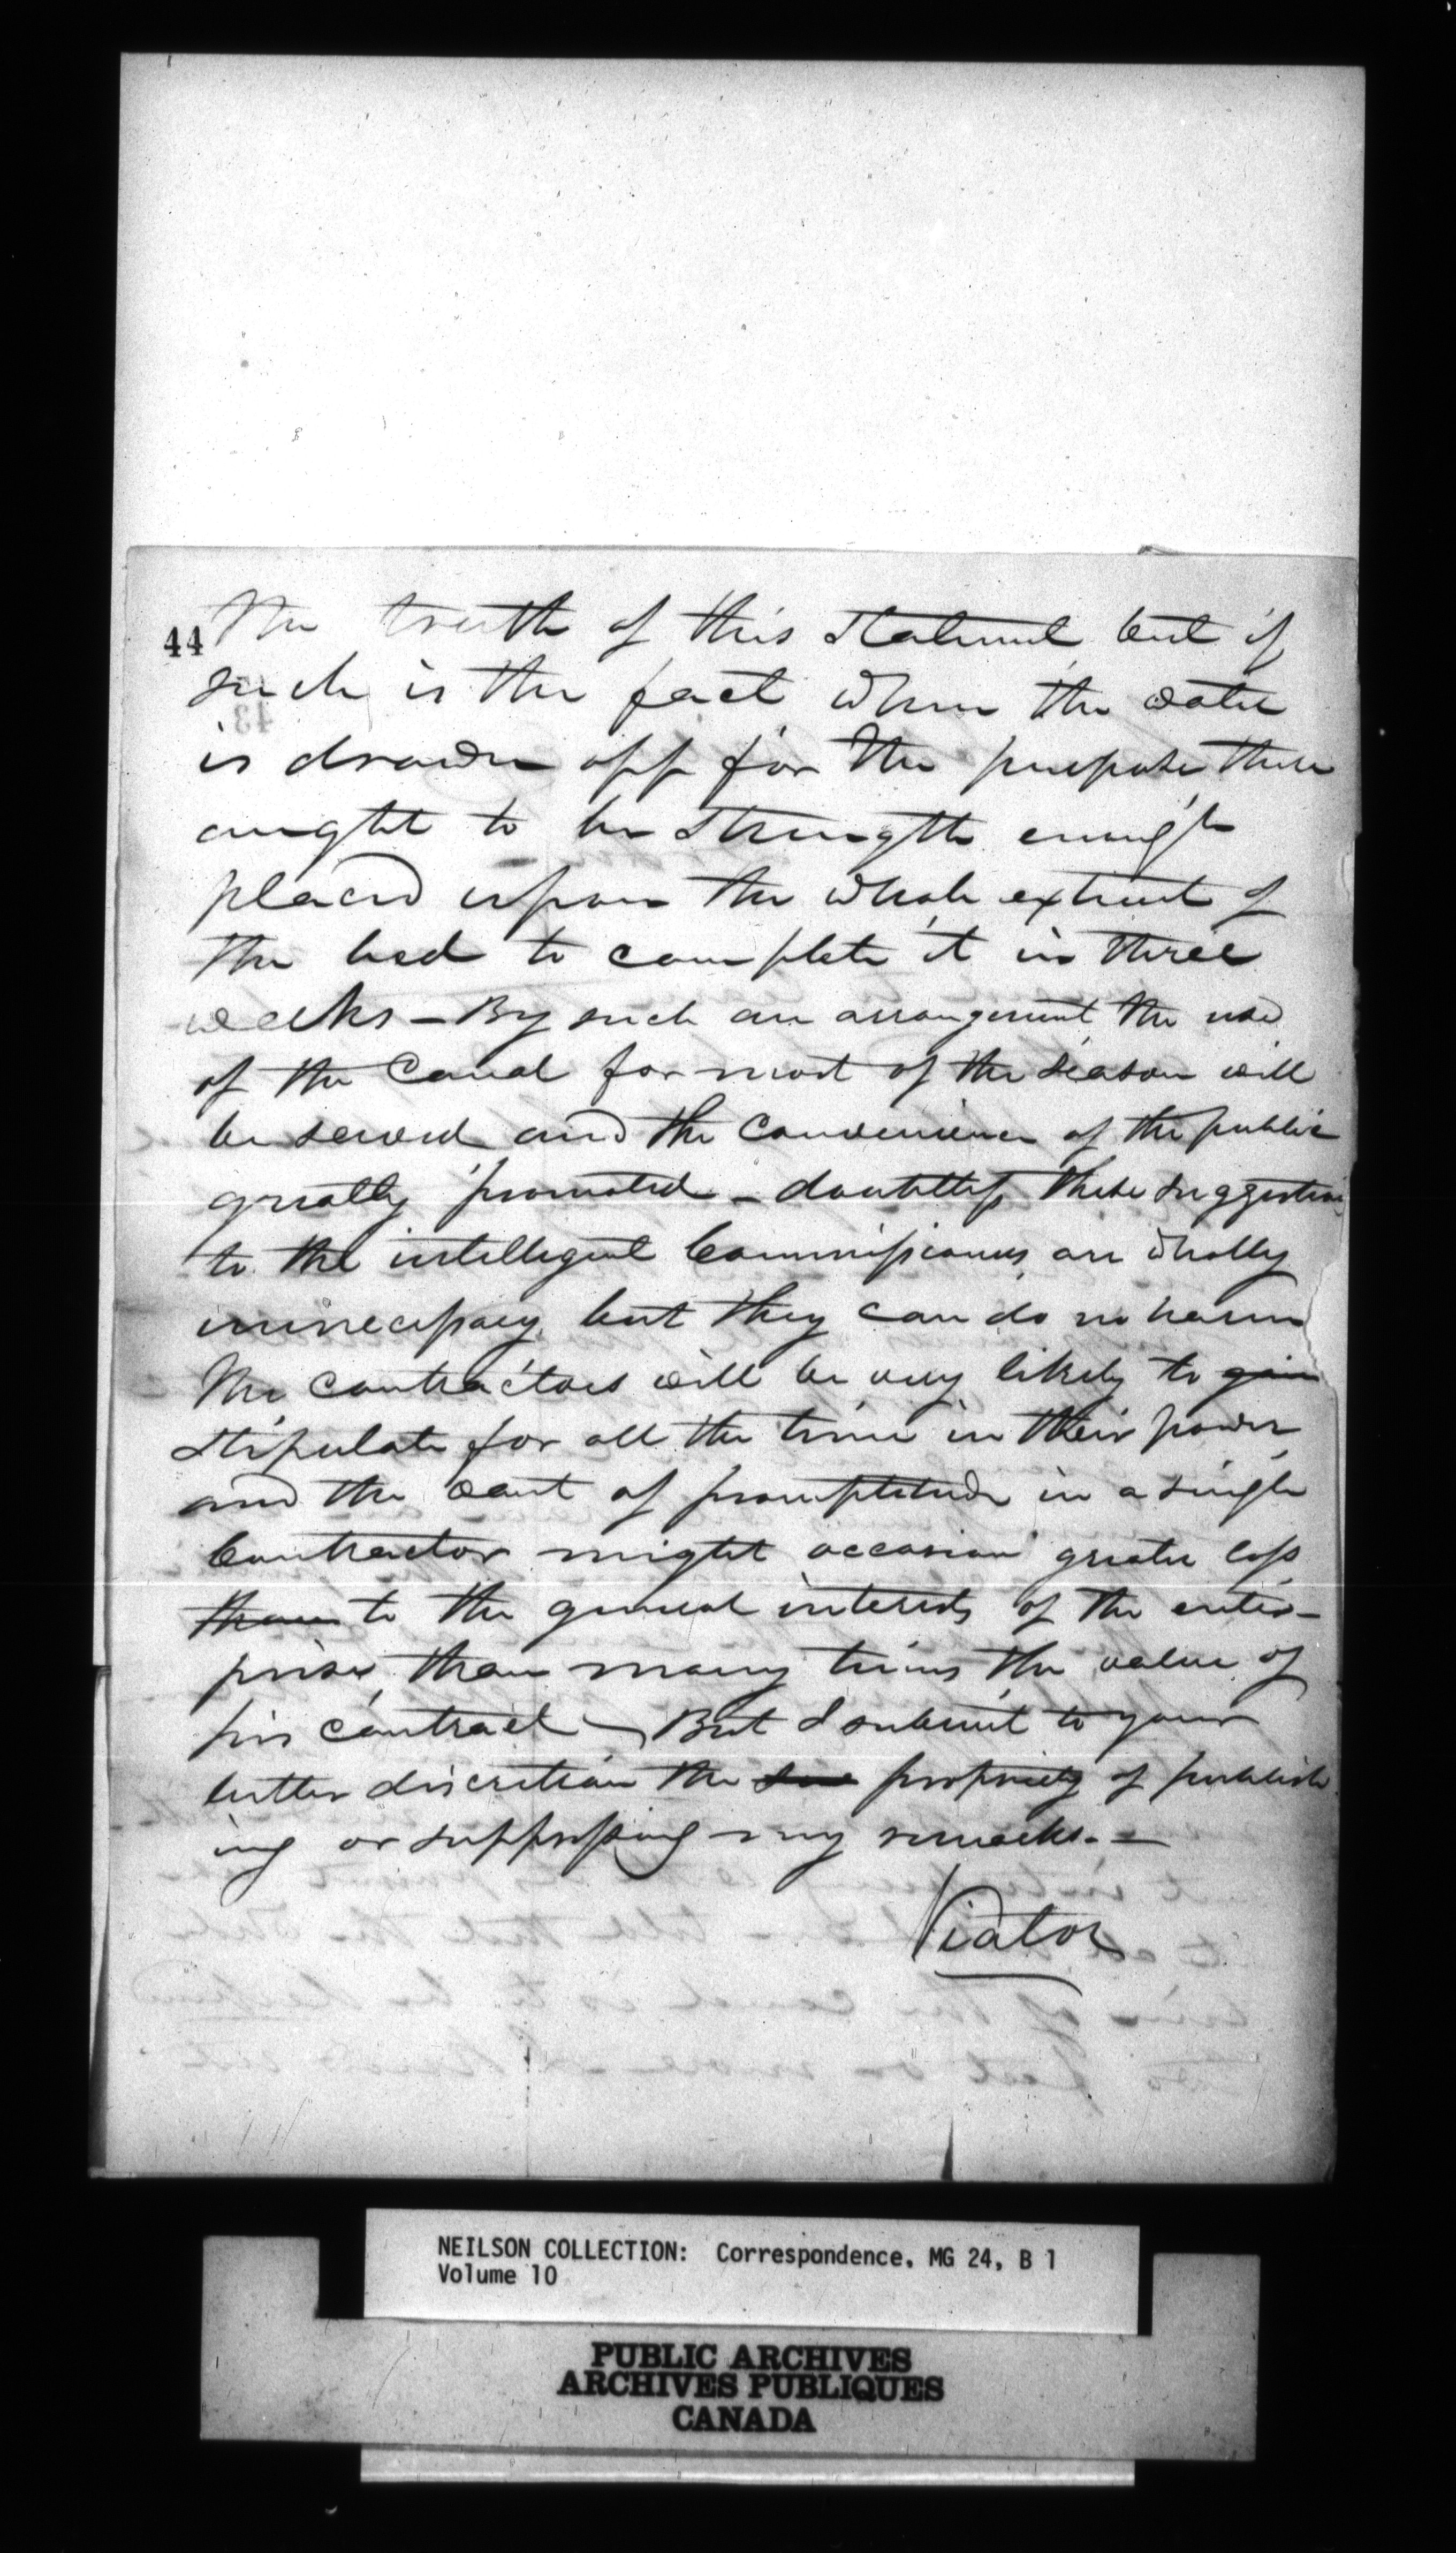 44
The truth of this statement but if
such is the fact when the water
is drawn off for the purpose there
aught to be strength enough
placed upon the whole extent of
the bed to complete it in three
weeks – By such an arrangement the use
of the Canal for most of the season will
be secured and the convenience of the public
greatly promoted – doubtless these suggestions
to the intelligent Commissioners are wholly
unnecessary but they can do no harm
The contractors will be very likely to gain
stipulate for all the time in their power
and the want of promptitude in a single
Contractor might occasion greater loss
than to the general interests of the enter-
prise than many times the value of
his contract – But I submit to your
better discretion the propriety of publish
ing or suppressing my remarks. –
Viator
NEILSON COLLECTION: Correspondence, MG 24, B 1
Volume 10
PUBLIC ARCHIVES
ARCHIVES PUBLIQUES
CANADA